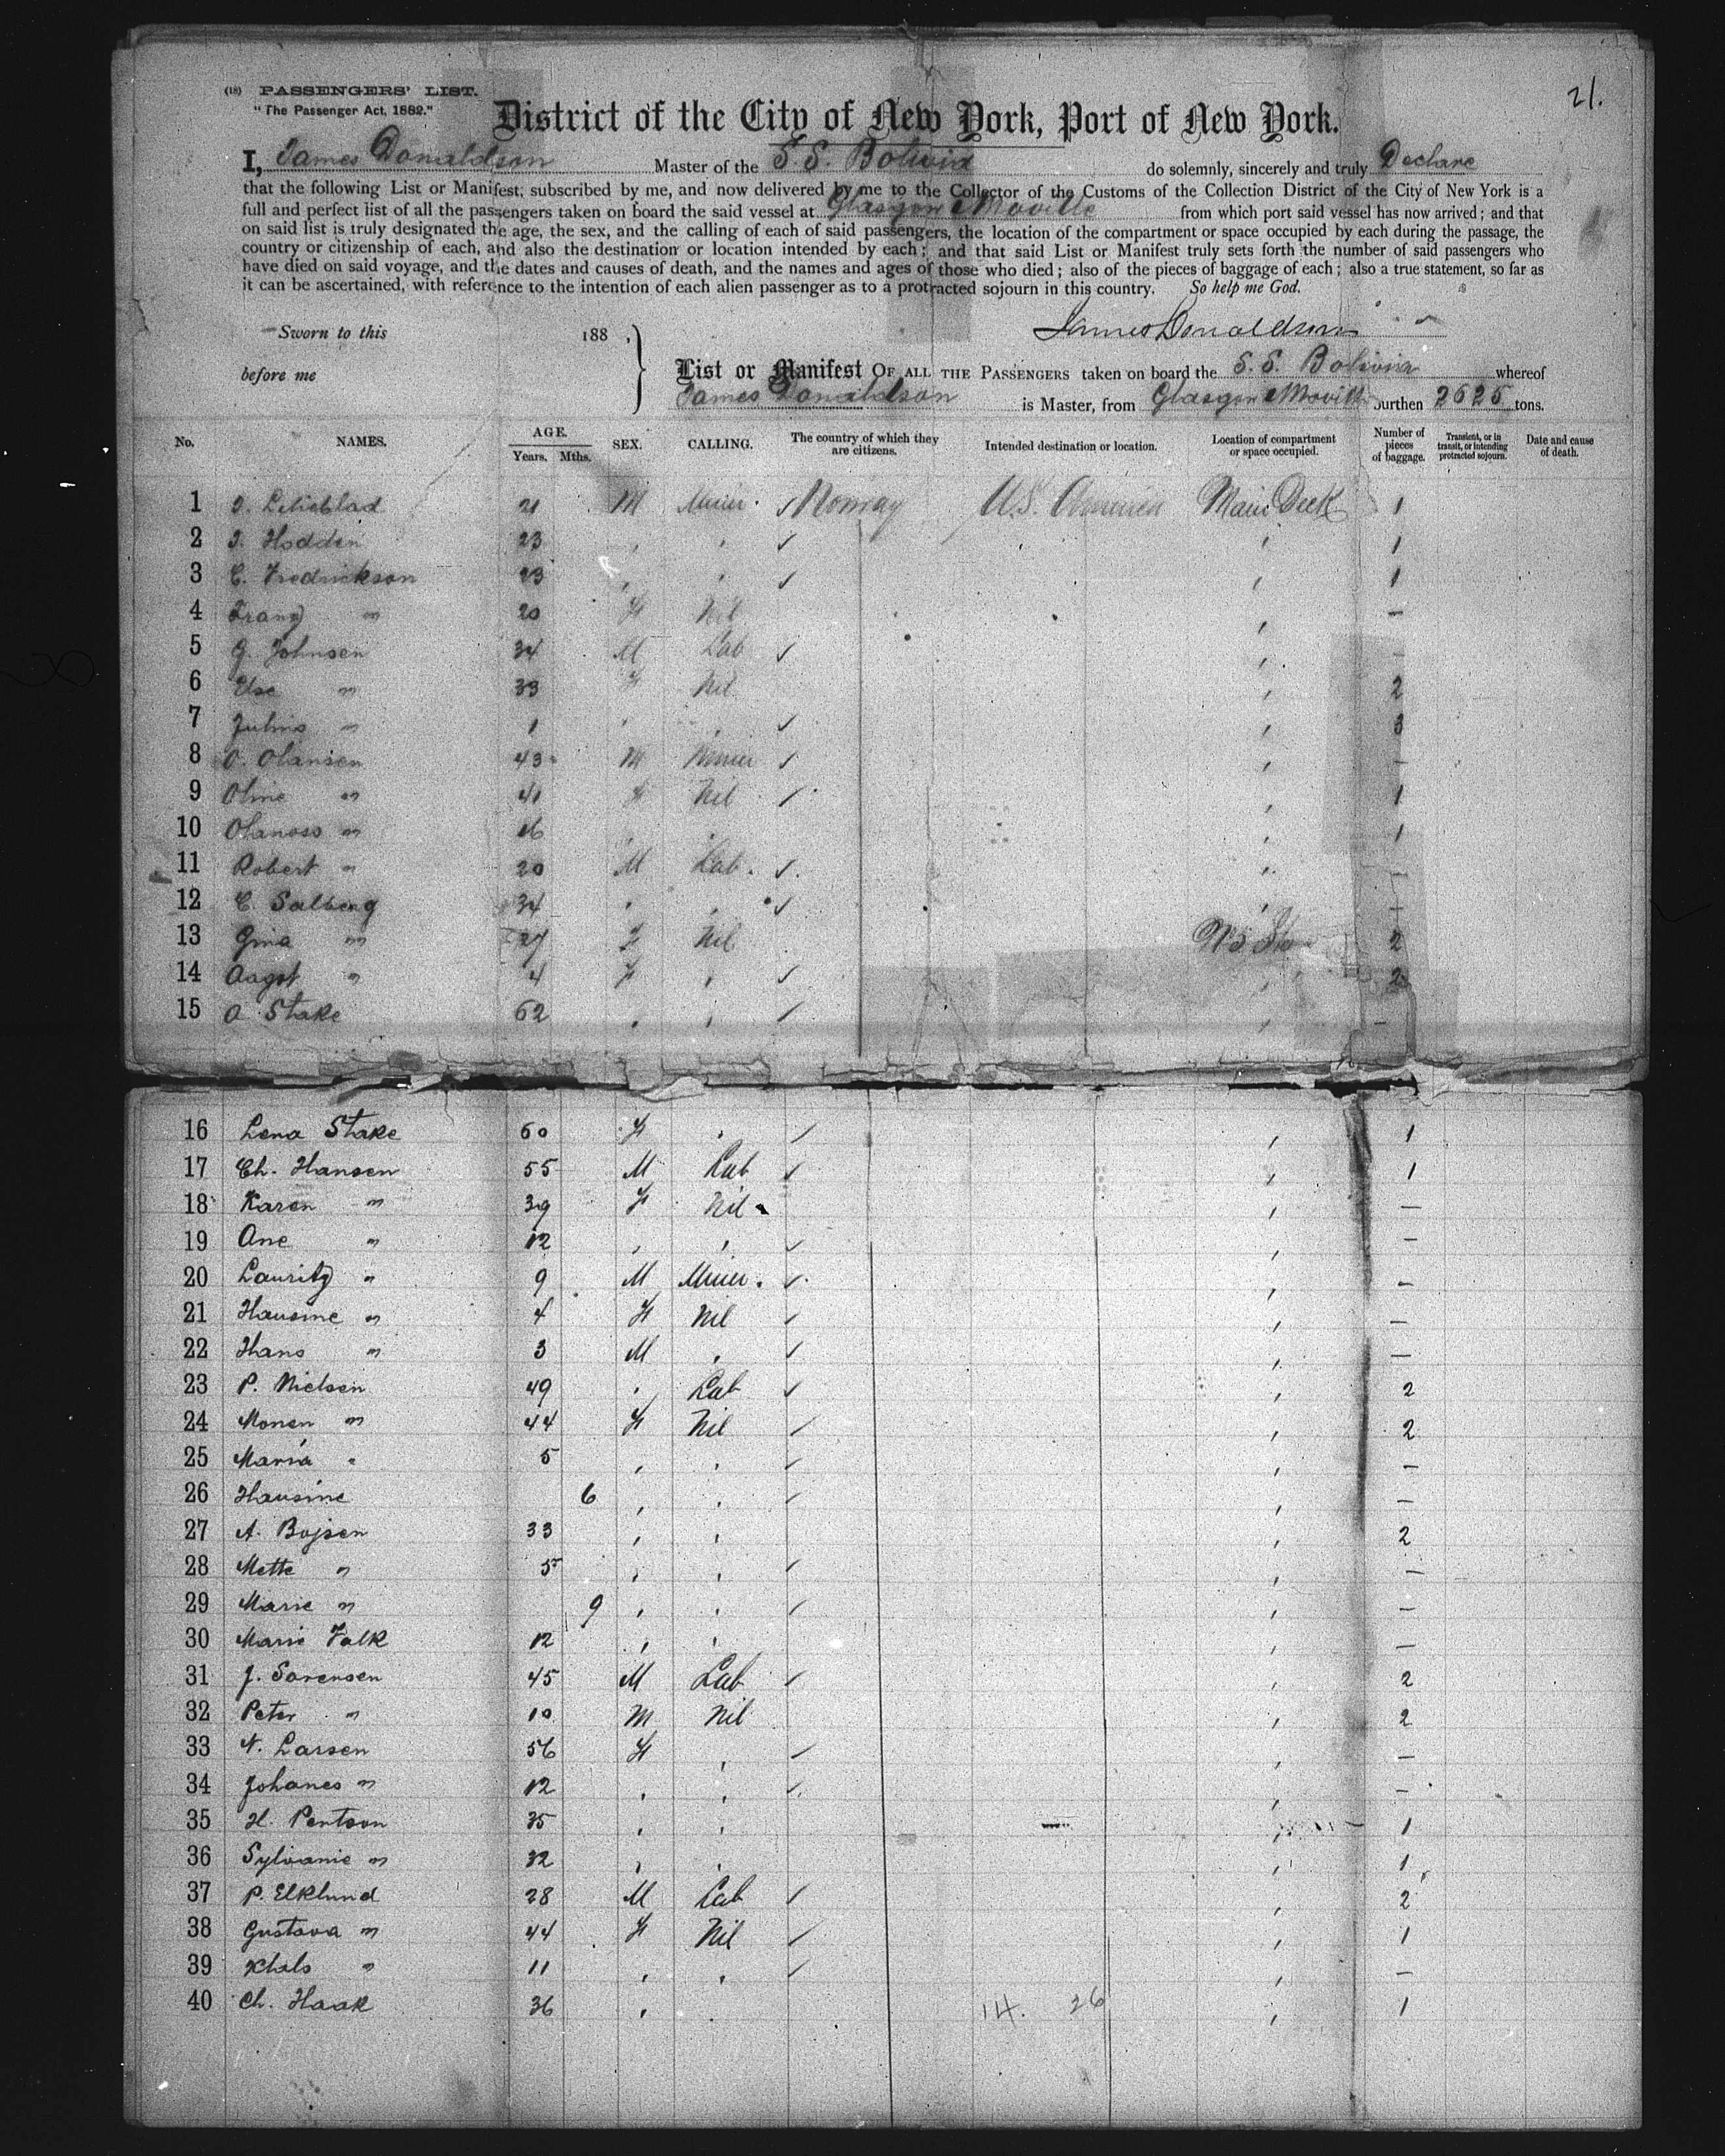 (18) PASSENGERS' LIST.
"The Passenger Act, 1882."
21.
District of the City of New York, Port of New York.
I, James Donaldson Master of the S.S. Bolivia do solemnly, sincerely and truly Declare
that the following List or Manifest, subscribed by me, and now delivered by me to the Collector of the Customs of the Collection District of the City of New York is a
full and perfect list of all the passengers taken on board the said vessel at Glasgow & Moville from which port said vessel has now arrived; and that
on said list is truly designated the age, the sex, and the calling of each of said passengers, the location of the compartment or space occupied by each during the passage, the
country or citizenship of each, and also the destination or location intended by each; and that said List or Manifest truly sets forth the number of said passengers who
have died on said voyage, and the dates and causes of death, and the names and ages of those who died; also of the pieces of baggage of each; also a true statement, so far as
it can be ascertained, with reference to the intention of each alien passenger as to a protracted sojourn in this country. So help me God.
Sworn to this 188 ,
James Donaldson
before me
List or Manifest OF ALL THE PASSENGERS taken on board the S.S. Bolivia whereof
James Donaldson is Master, from Glasgow & Moville burthen 2625 tons.
No. NAMES. AGE. Years. Mths. SEX. CALLING. The country of which they are citizens. Intended destination or location. Location of compartment or space occupied. Number of pieces of baggage. Transient, or in transit, or intending protracted sojourn. Date and cause of death.
1 21 M Miner ✓ Norway U.S. America Main Deck 1
2 Hodden 23 " " ✓ " 1
3 C. Fredrickson 23 " " ✓ " 1
4 " 20 F Nil " —
5 G. Johnsen 34 M Lab ✓ " —
6 Else " 33 F Nil " 2
7 Julius " 1 " " ✓ " 3
8 O. Olansen 43 M Miner ✓ " —
9 Oline " 41 F Nil ✓ " 1
10 " 16 " " " 1
11 Robert " 20 M Lab. ✓ " —
12 C. Salberg 34 " " ✓ " —
13 Gina " 27 F Nil 2
14 Aagot " 4 F " ✓ " 2
15 A Stake 62 " " ✓ " —
16 Lena Stake 60 F " ✓ " 1
17 Ch. Hansen 55 M Lab ✓ " 1
18 Karen " 39 F Nil " —
19 Ane " 12 " " ✓ " —
20 Lauritz " 9 M Miner. ✓ " —
21 Hansine " 4 F Nil ✓ " —
22 Hans " 3 M " ✓ " —
23 P. Nielsen 49 " Lab ✓ " 2
24 Monen " 44 F Nil ✓ " 2
25 Maria " 5 " " ✓ " —
26 Hansine 6 " " ✓ " —
27 A. Bojsen 33 " " " 2
28 Mette " 5 " " ✓ " —
29 Marie " 9 " " ✓ " —
30 Marie Falk 12 " " " —
31 J. Sorensen 45 M Lab ✓ " 2
32 Peter " 10 M Nil " 2
33 N. Larsen 56 F " ✓ " —
34 Johanes " 12 " " ✓ " —
35 H. Pentson 35 " " " 1
36 Sylvanie " 32 " " " 1
37 P. Elklund 28 M Lab ✓ " 2
38 Gustava " 44 F Nil ✓ " 1
39 " 11 " " ✓ " —
40 Ch. Haak 36 " " 14. 26 " 1